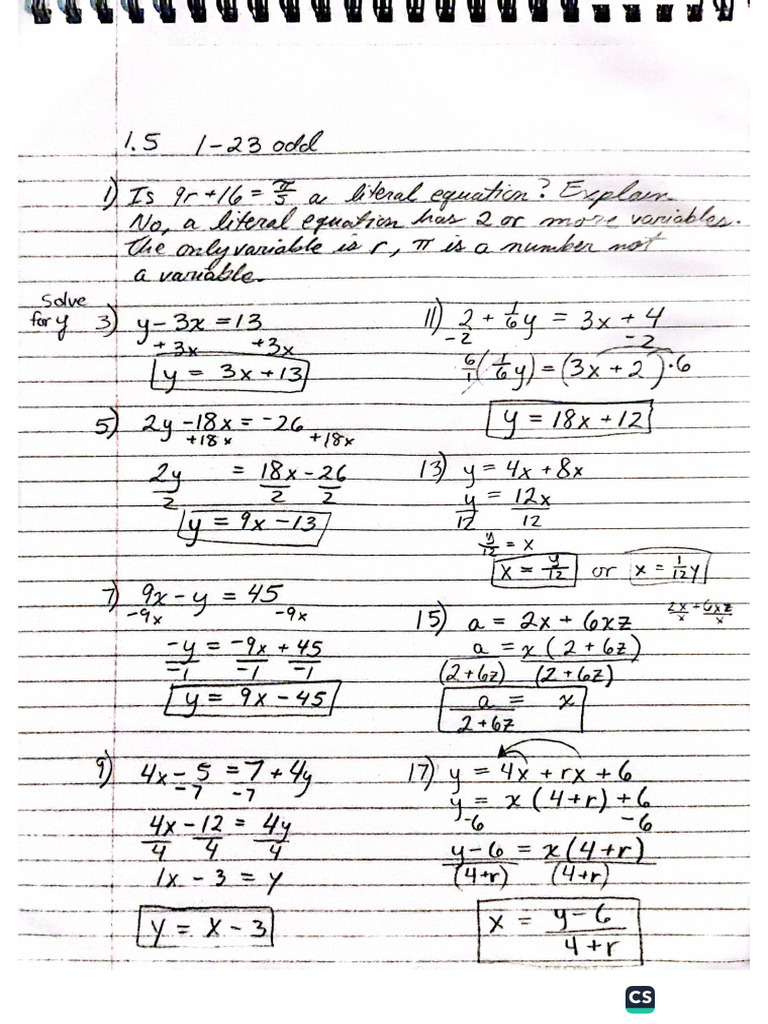 1.5 1-23 odd
1) Is 9r+16 = π/5 a literal equation? Explain.
No, a literal equation has 2 or more variables.
The only variable is r, π is a number not
a variable.
Solve
for y
3) y - 3x = 13
+3x +3x
y = 3x + 13
5) 2y - 18x = -26
+18x +18x
2y = 18x - 26
2 2 2
y = 9x - 13
7) 9x - y = 45
-9x -9x
-y = -9x + 45
-1 -1 -1
y = 9x - 45
9) 4x - 5 = 7 + 4y
-7 -7
4x - 12 = 4y
4 4 4
1x - 3 = y
y = x - 3
11) 2 + 1/6 y = 3x + 4
-2 -2
6/1 (1/6 y) = (3x + 2) · 6
y = 18x + 12
13) y = 4x + 8x
y = 12x
12 12
y/12 = x
x = y/12 or x = 1/12 y
15) a = 2x + 6xz 2x/x + 6xz/x
a = x(2 + 6z)
(2+6z) (2+6z)
a = x
2+6z
17) y = 4x + rx + 6
y = x(4+r) + 6
-6 -6
y - 6 = x(4+r)
(4+r) (4+r)
x = y - 6
4 + r
CS